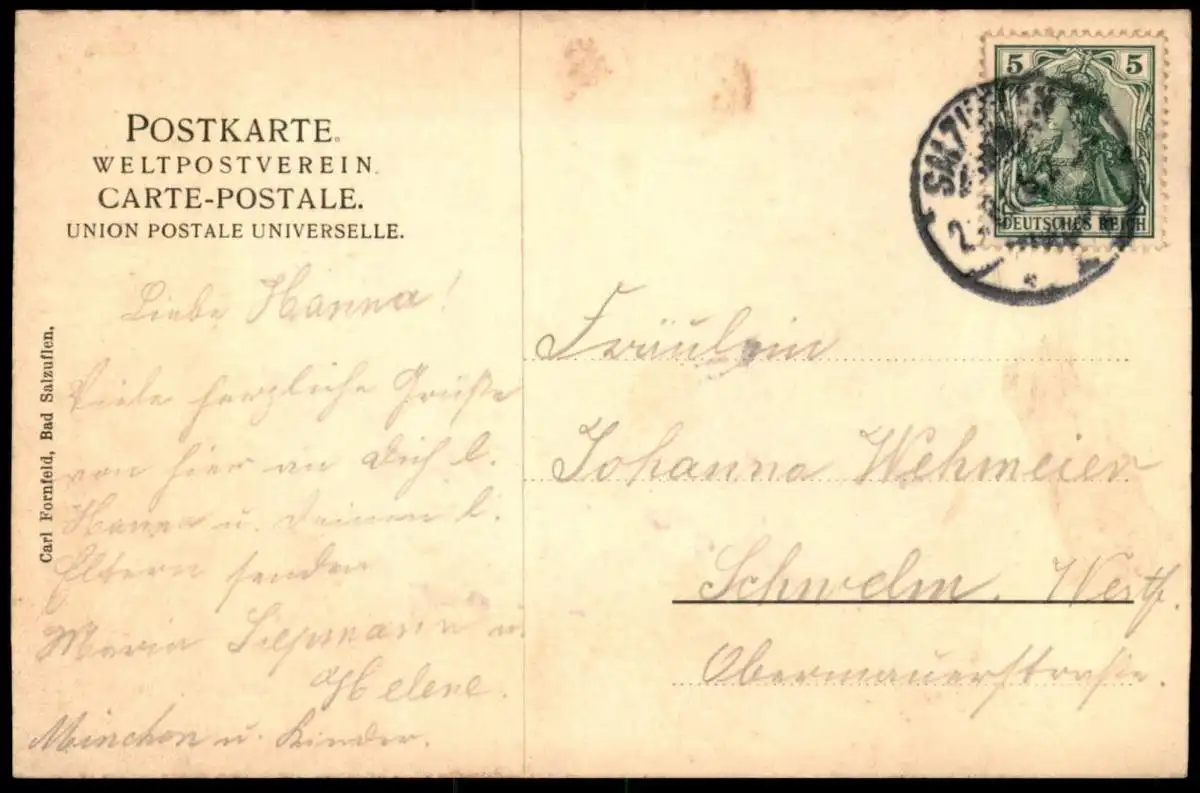 POSTKARTE.
WELTPOSTVEREIN.
CARTE-POSTALE.
UNION POSTALE UNIVERSELLE.
Carl Fornfeld, Bad Salzuflen.
Liebe Hanna!
Viele herzliche Grüße
von hier an Dich l.
Hanna u. Deinen l.
Eltern senden
Maria Siepmann u.
Helene.
Minchen u. Kinder.
5 5
DEUTSCHES REICH
Fräulein
Johanna Wehmeier
Schwelm. Westf.
Obermauerstraße.